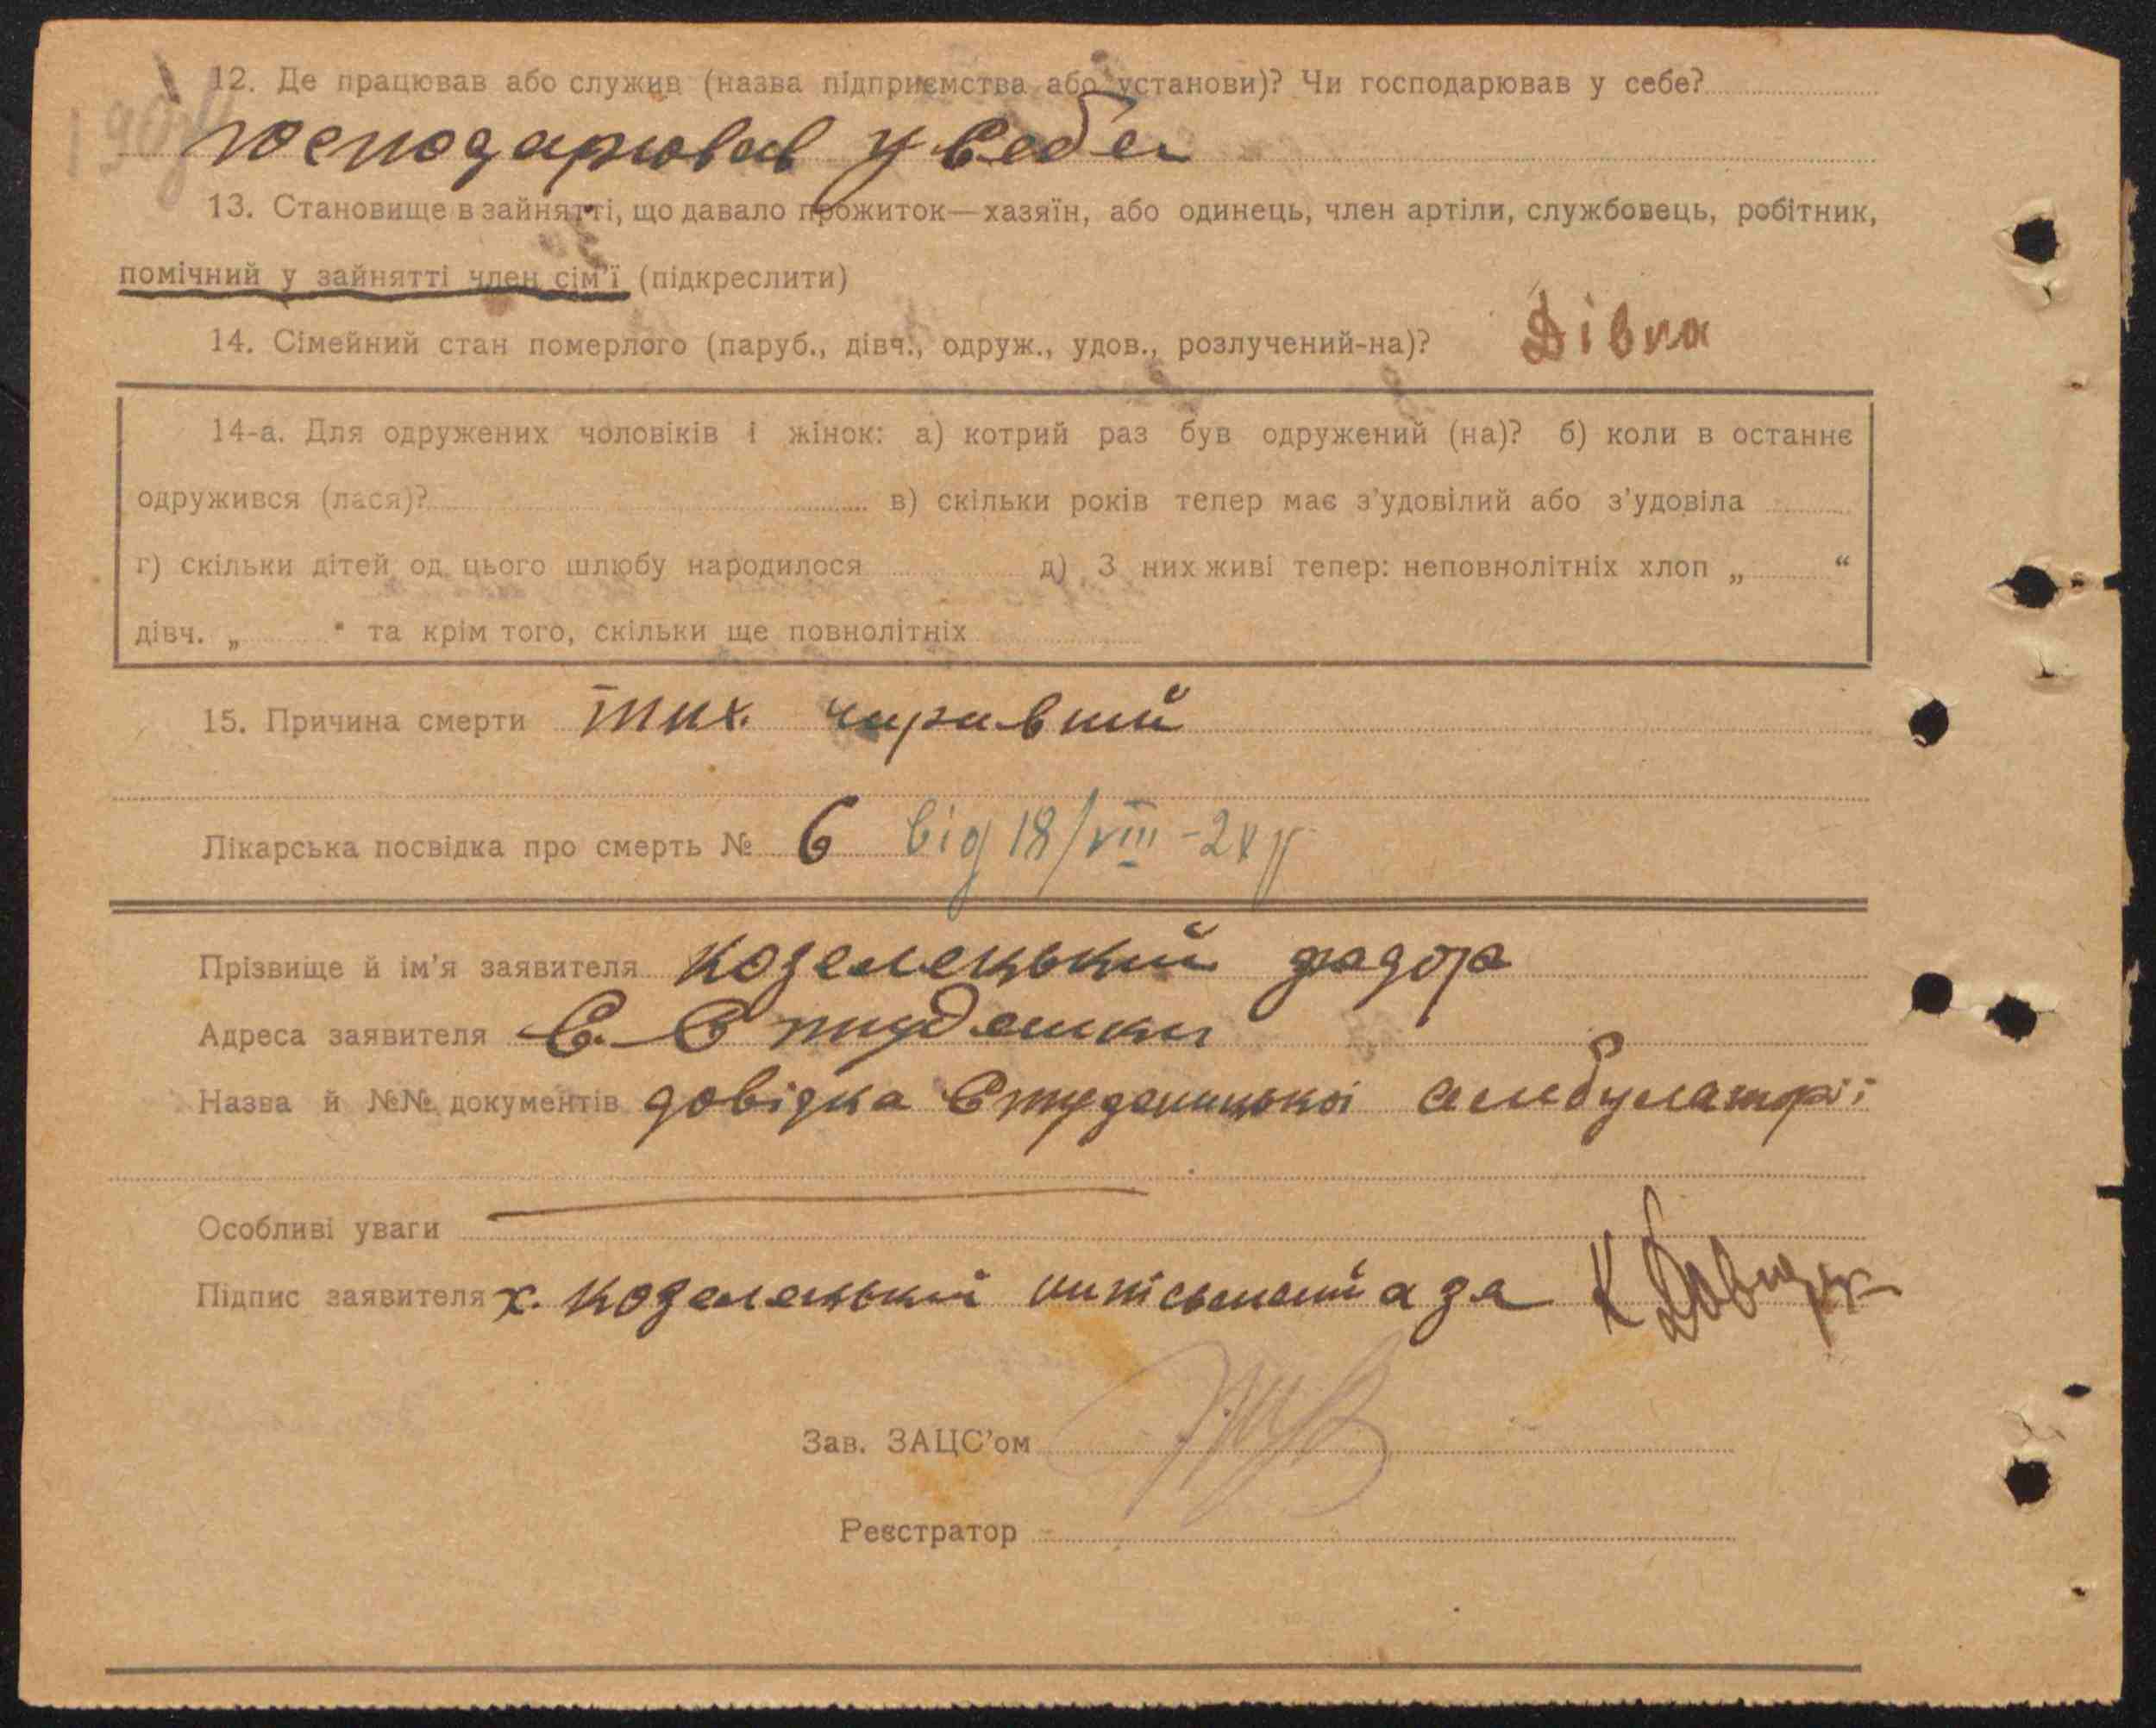 12. Де працював або служив (назва підприємства або установи)? Чи господарював у себе?
господарював у себе
13. Становище в зайнятті, що давало прожиток—хазяїн, або одинець, член артіли, службовець, робітник,
помічний у зайнятті член сім'ї (підкреслити)
14. Сімейний стан померлого (паруб., дівч., одруж., удов., розлучений-на)? Дівка
14-а. Для одружених чоловіків і жінок: а) котрий раз був одружений (на)? б) коли в останнє
одружився (лася)? в) скільки років тепер має з'удовілий або з'удовіла
г) скільки дітей од цього шлюбу народилося д) З них живі тепер: неповнолітніх хлоп „ “
дівч. „ “ та крім того, скільки ще повнолітніх
15. Причина смерти тих. чиривний
Лікарська посвідка про смерть № 6 від 18/VIII-28 р
Прізвище й ім'я заявителя Козелецький
Адреса заявителя С. Студенки
Назва й №№ документів довідка Студеницької амбулаторії
Особливі уваги
Підпис заявителя х. Козелецький а за К
Зав. ЗАЦС'ом
Реєстратор